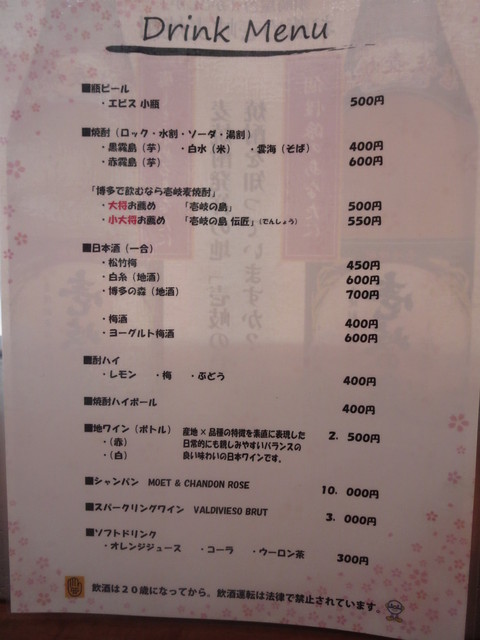 Drink Menu
■瓶ビール
・エビス 小瓶 500円
■焼酎(ロック・水割・ソーダ・湯割)
・黒霧島(芋) ・白水(米) ・雲海(そば) 400円
・赤霧島(芋) 600円
「博多で飲むなら壱岐麦焼酎」
・大将お薦め 「壱岐の島」 500円
・小大将お薦め 「壱岐の島 伝匠」(でんしょう) 550円
■日本酒(一合)
・松竹梅 450円
・白糸(地酒) 600円
・博多の森(地酒) 700円
・梅酒 400円
・ヨーグルト梅酒 600円
■酎ハイ
・レモン ・梅 ・ぶどう 400円
■焼酎ハイボール 400円
■地ワイン(ボトル) 産地×品種の特徴を素直に表現した 2.500円
・(赤) 日常的にも親しみやすいバランスの
・(白) 良い味わいの日本ワインです。
■シャンパン MOET & CHANDON ROSE 10.000円
■スパークリングワイン VALDIVIESO BRUT 3.000円
■ソフトドリンク
・オレンジジュース ・コーラ ・ウーロン茶 300円
飲酒は20歳になってから。飲酒運転は法律で禁止されています。